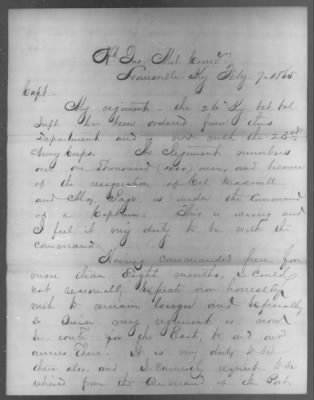 Hd Qrs Mil Comdr
Louisville Ky Feby 7. 1865
Capt.
My regiment - the 26th Ky Vet Vol
Inft has been ordered from this
Department and is now with the 23rd
Army Corps. The Regiment numbers
over one Thousand (1000) men, and because
of the resignation of Col Maxwell
and Maj. Page, is under the command
of a Captain. This is wrong and
I feel it my duty to be with the
command.
Having commanded here for
more than Eight months, I could
not reasonably expect nor honestly
wish to remain longer and Especially
so Since my regiment is now
En route for the East, to aid our
armies There. It is my duty to be
there also, and I Earnestly request to be
relieved from the Command of the Post